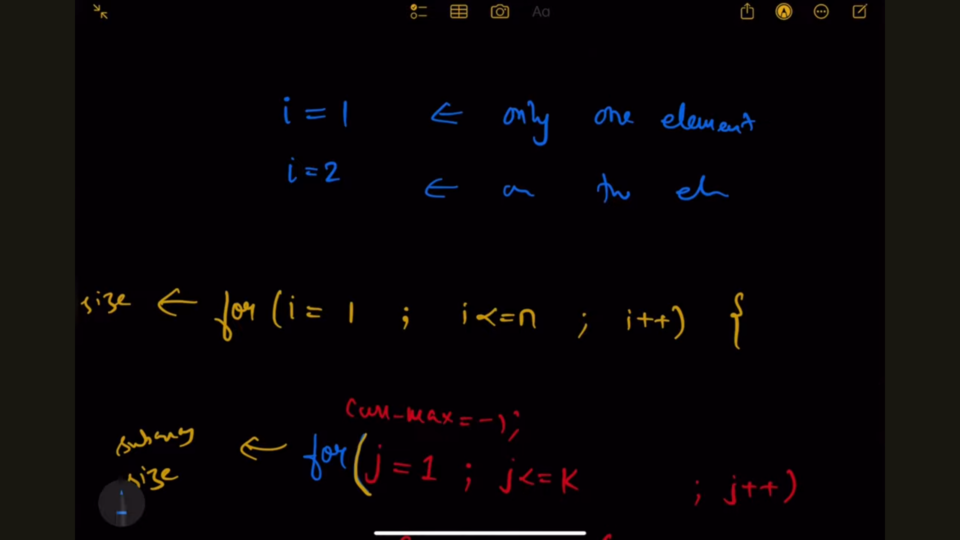 Aa
i = 1 ← only one element
i = 2 ←
size ← for (i = 1 ; i <= n ; i++) {
curr_max = -1;
subarray size ← for (j = 1 ; j <= K ; j++)